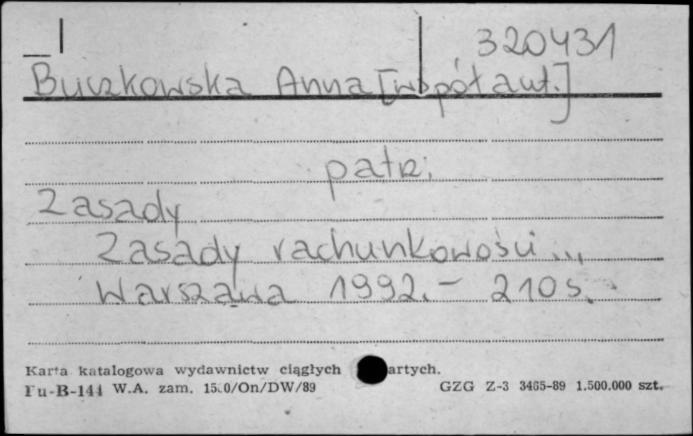 320431
Buczkowska Anna [współaut.]
patrz:
Zasady
Zasady rachunkowości ...
Warszawa 1992. - 210 s.
Karta katalogowa wydawnictw ciągłych artych.
Pu-B-144 W.A. zam. /On/DW/89 GZG Z-3 3465-89 1.500.000 szt.